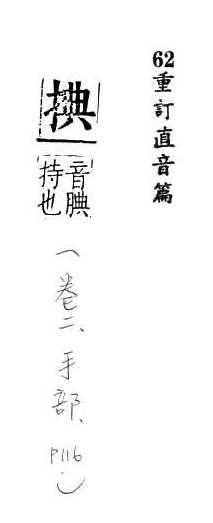 62重訂直音篇
捵
音腆
持也
（卷二、手部、P116）